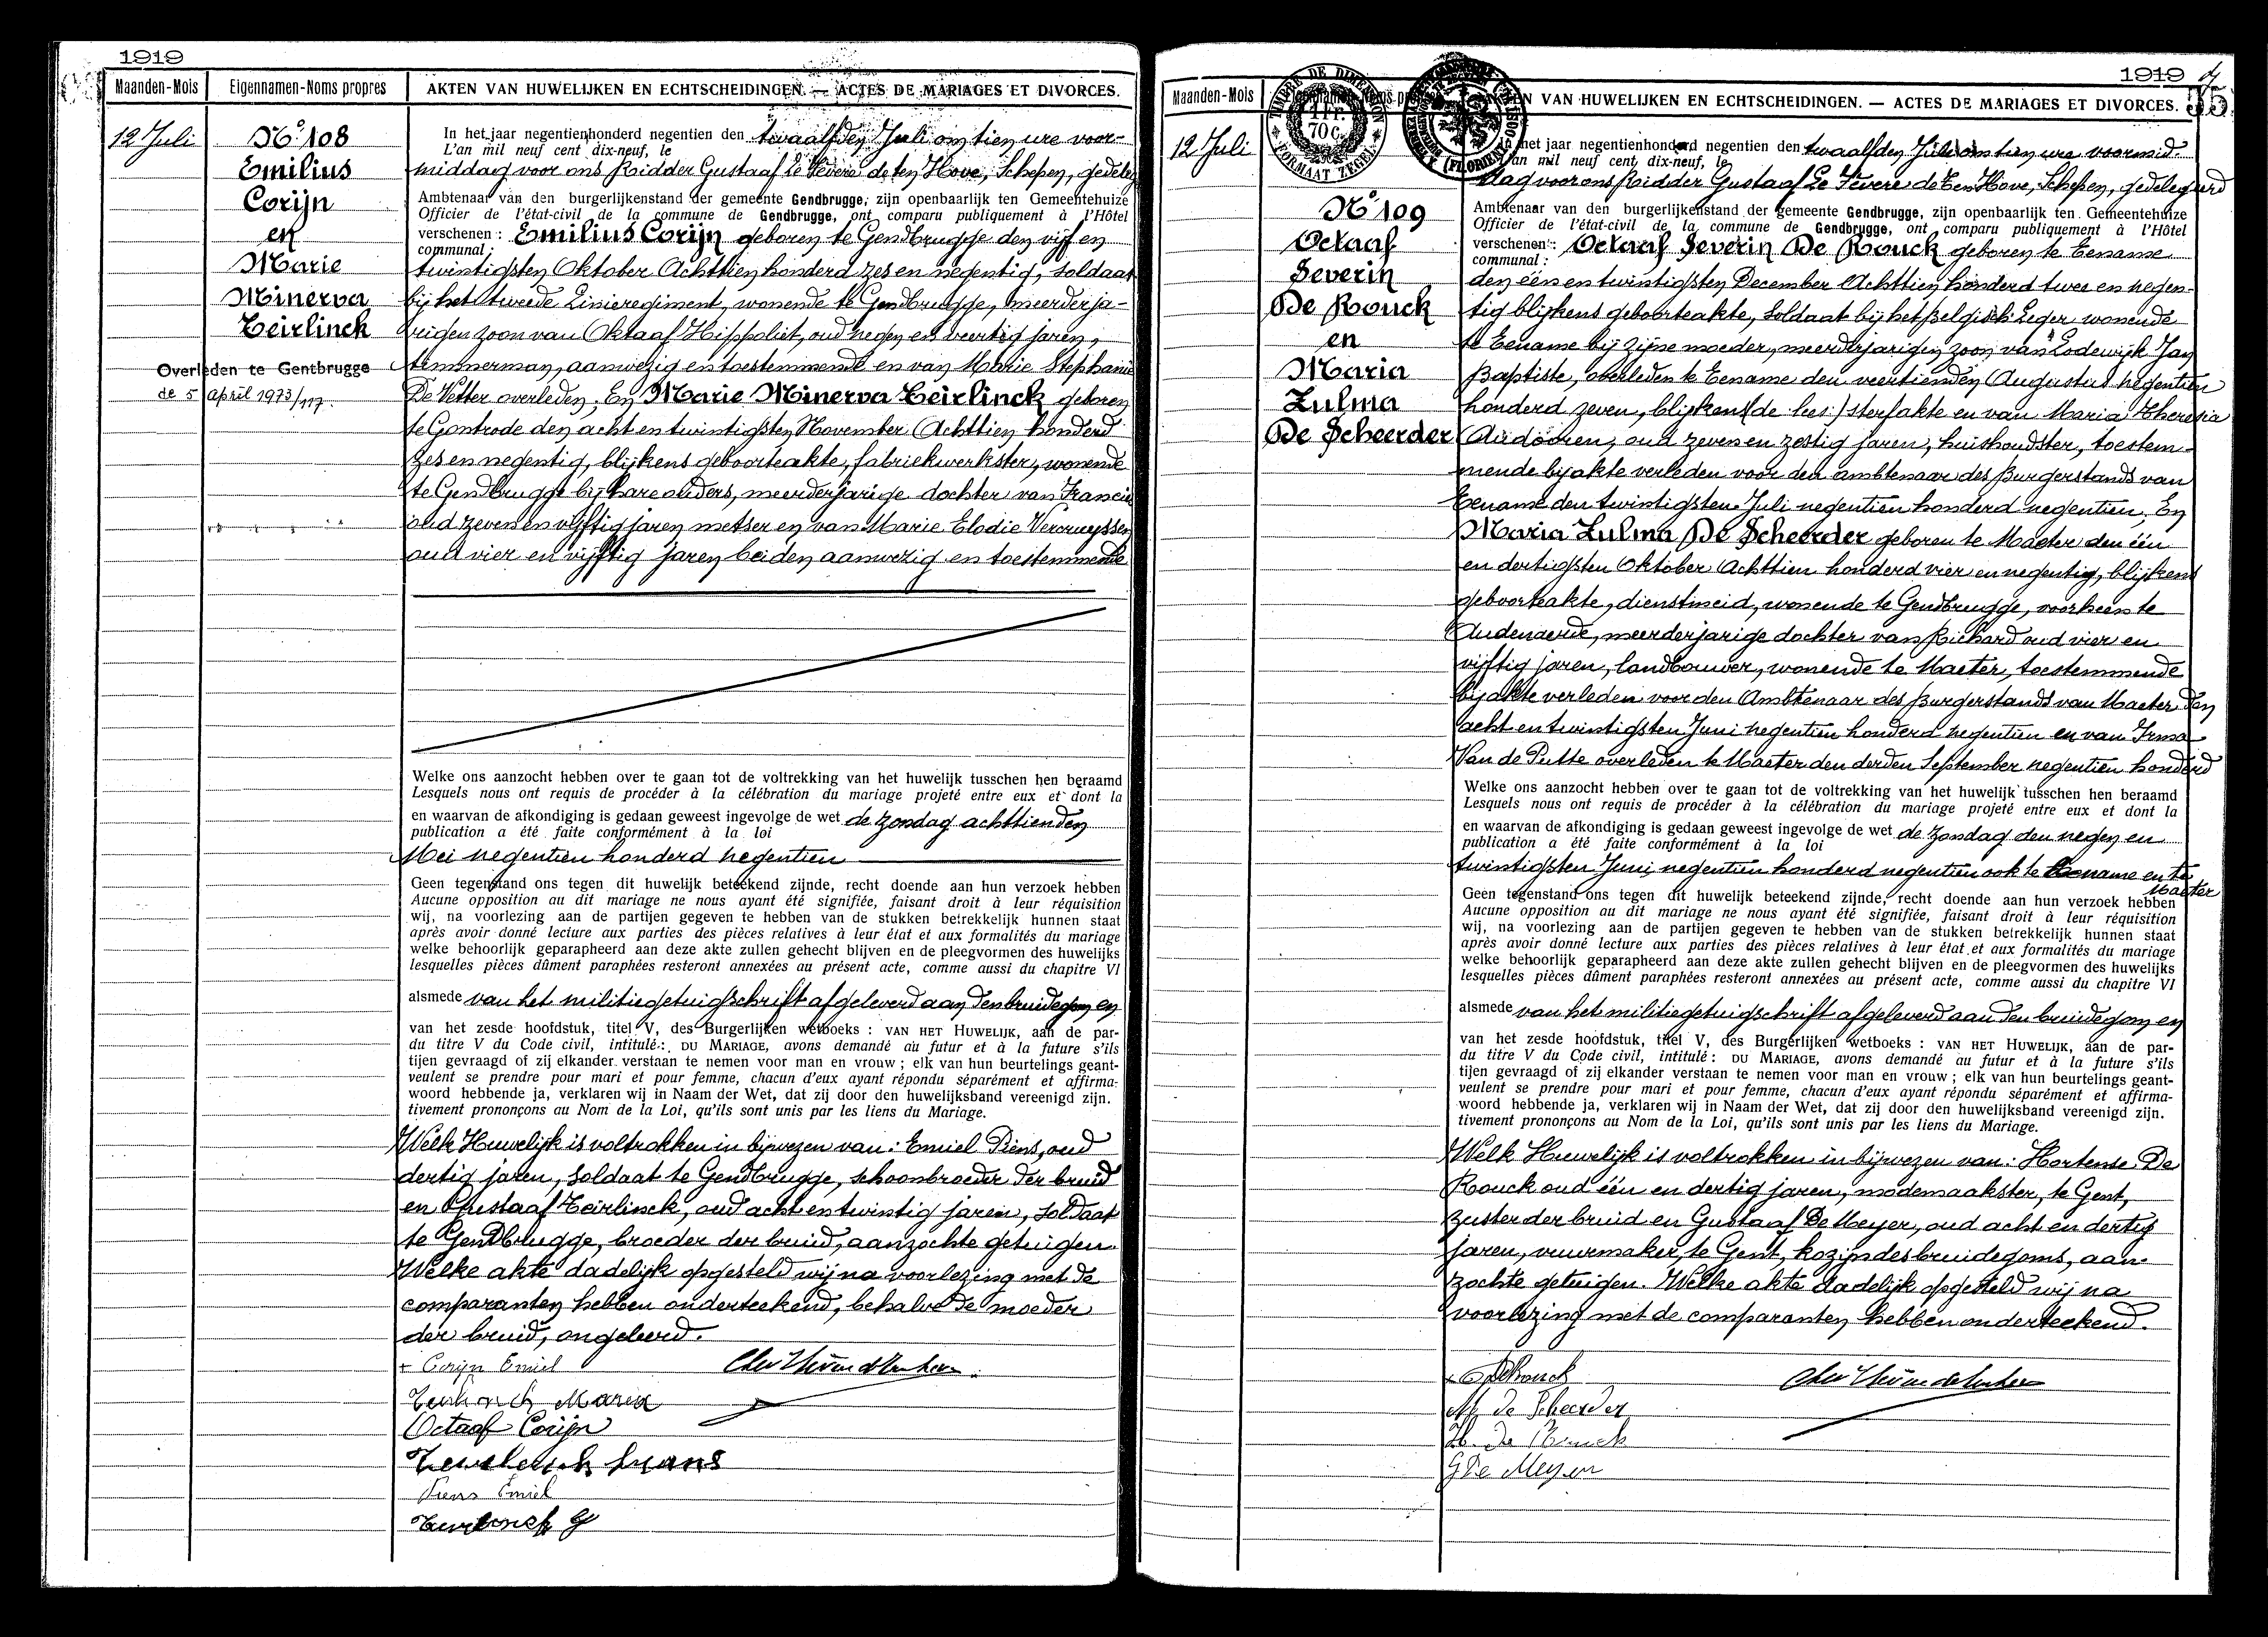 1919
Maanden-Mois
Eigennamen-Noms propres
AKTEN VAN HUWELIJKEN EN ECHTSCHEIDINGEN. — ACTES DE MARIAGES ET DIVORCES.
12 Juli
N° 108
Emilius
Corijn
en
Marie
Minerva
Teirlinck
Overleden te Gentbrugge
de 5 april 1973/117.
In het jaar negentienhonderd negentien den twaalfden Juli om tien ure voor-
L'an mil neuf cent dix-neuf, le
middag voor ons Ridder Gustaaf Le Fevere de ten Hove, Schepen, gedeleg
Ambtenaar van den burgerlijkenstand der gemeente Gendbrugge, zijn openbaarlijk ten Gemeentehuize
Officier de l'état-civil de la commune de Gendbrugge, ont comparu publiquement à l'Hôtel
verschenen : Emilius Corijn geboren te Gendbrugge den vijf en
communal :
twintigsten Oktober Achttien honderd zes en negentig, soldaat
bij het tweede Linieregiment, wonende te Gendbrugge, meerderja-
rigen zoon van Oktaaf Hippoliet, oud negen en veertig jaren,
timmerman, aanwezig en toestemmende en van Marie Stephanie
De Vetter overleden; En Marie Minerva Teirlinck geboren
te Gontrode den acht en twintigsten November Achttien honderd
zes en negentig, blijkens geboorteakte, fabriekwerkster, wonende
te Gendbrugge bij hare ouders, meerderjarige dochter van Francis
oud zeven en vijftig jaren metser en van Marie Elodie Vercruyssen
oud vier en vijftig jaren beiden aanwezig en toestemmende
Welke ons aanzocht hebben over te gaan tot de voltrekking van het huwelijk tusschen hen beraamd
Lesquels nous ont requis de procéder à la célébration du mariage projeté entre eux et dont la
en waarvan de afkondiging is gedaan geweest ingevolge de wet de zondag achttienden
publication a été faite conformément à la loi
Mei negentien honderd negentien
Geen tegenstand ons tegen dit huwelijk beteekend zijnde, recht doende aan hun verzoek hebben
Aucune opposition au dit mariage ne nous ayant été signifiée, faisant droit à leur réquisition
wij, na voorlezing aan de partijen gegeven te hebben van de stukken betrekkelijk hunnen staat
après avoir donné lecture aux parties des pièces relatives à leur état et aux formalités du mariage
welke behoorlijk geparapheerd aan deze akte zullen gehecht blijven en de pleegvormen des huwelijks
lesquelles pièces dûment paraphées resteront annexées au présent acte, comme aussi du chapitre VI
alsmede van het militiegetuigschrift afgeleverd aan den bruidegom en
van het zesde hoofdstuk, titel V, des Burgerlijken wetboeks : VAN HET HUWELIJK, aan de par-
du titre V du Code civil, intitulé : DU MARIAGE, avons demandé au futur et à la future s'ils
tijen gevraagd of zij elkander verstaan te nemen voor man en vrouw ; elk van hun beurtelings geant-
veulent se prendre pour mari et pour femme, chacun d'eux ayant répondu séparément et affirma-
woord hebbende ja, verklaren wij in Naam der Wet, dat zij door den huwelijksband vereenigd zijn.
tivement prononçons au Nom de la Loi, qu'ils sont unis par les liens du Mariage.
Welk Huwelijk is voltrokken in bijwezen van: Emiel Piens, oud
dertig jaren, soldaat te Gendbrugge, schoonbroeder der bruid
en Gustaaf Teirlinck, oud acht en twintig jaren, soldaat
te Gendbrugge, broeder der bruid, aanzochte getuigen.
Welke akte dadelijk opgesteld wij na voorlezing met de
comparanten hebben onderteekend, behalve de moeder
der bruid, ongeleerd.
+ Corijn Emiel
Teirlinck Maria
Octaaf Corijn
Teirlinck frans
Piens Emiel
Teirlinck G
1919
35
Maanden-Mois
TIMBRE DE DIMENSION
70 C.
FORMAAT ZEGEL
N VAN HUWELIJKEN EN ECHTSCHEIDINGEN. — ACTES DE MARIAGES ET DIVORCES.
12 Juli
N° 109
Octaaf
Severin
De Rouck
en
Maria
Zulma
De Scheerder
In het jaar negentienhonderd negentien den twaalfden Juli om tien ure voormid-
L'an mil neuf cent dix-neuf, le
dag voor ons Ridder Gustaaf Le Fevere de ten Hove, Schepen, gedelegeerd
Ambtenaar van den burgerlijkenstand der gemeente Gendbrugge, zijn openbaarlijk ten Gemeentehuize
Officier de l'état-civil de la commune de Gendbrugge, ont comparu publiquement à l'Hôtel
verschenen : Octaaf Severin De Rouck geboren te Eename
communal :
den één en twintigsten December Achttien honderd twee en negen-
tig blijkens geboorteakte, soldaat bij het Belgisch Leger wonende
te Eename bij zijne moeder, meerderjarigen zoon van Lodewijk Jan
Baptiste, overleden te Eename den veertienden Augustus negentien
honderd zeven, blijkens (de lees:) sterfakte en van Maria Theresia
Audooren, oud zeven en zestig jaren, huishoudster, toestem-
mende bij akte verleden voor den ambtenaar des Burgerstands van
Eename den twintigsten Juli negentien honderd negentien; En
Maria Zulma De Scheerder geboren te Maeter den één
en dertigsten Oktober Achttien honderd vier en negentig, blijkens
geboorteakte, dienstmeid, wonende te Gendbrugge, voorheen te
Audenaerde, meerderjarige dochter van Richard oud vier en
vijftig jaren, landbouwer, wonende te Maeter, toestemmende
bij akte verleden voor den Ambtenaar des Burgerstands van Maeter den
acht en twintigsten Juni negentien honderd negentien en van Irma
Van de Putte overleden te Maeter den derden September negentien honderd
Welke ons aanzocht hebben over te gaan tot de voltrekking van het huwelijk tusschen hen beraamd
Lesquels nous ont requis de procéder à la célébration du mariage projeté entre eux et dont la
en waarvan de afkondiging is gedaan geweest ingevolge de wet de zondag den negen en
publication a été faite conformément à la loi
twintigsten Juni negentien honderd negentien ook te Eename en te
Maeter
Geen tegenstand ons tegen dit huwelijk beteekend zijnde, recht doende aan hun verzoek hebben
Aucune opposition au dit mariage ne nous ayant été signifiée, faisant droit à leur réquisition
wij, na voorlezing aan de partijen gegeven te hebben van de stukken betrekkelijk hunnen staat
après avoir donné lecture aux parties des pièces relatives à leur état et aux formalités du mariage
welke behoorlijk geparapheerd aan deze akte zullen gehecht blijven en de pleegvormen des huwelijks
lesquelles pièces dûment paraphées resteront annexées au présent acte, comme aussi du chapitre VI
alsmede van het militiegetuigschrift afgeleverd aan den bruidegom en
van het zesde hoofdstuk, titel V, des Burgerlijken wetboeks : VAN HET HUWELIJK, aan de par-
du titre V du Code civil, intitulé : DU MARIAGE, avons demandé au futur et à la future s'ils
tijen gevraagd of zij elkander verstaan te nemen voor man en vrouw ; elk van hun beurtelings geant-
veulent se prendre pour mari et pour femme, chacun d'eux ayant répondu séparément et affirma-
woord hebbende ja, verklaren wij in Naam der Wet, dat zij door den huwelijksband vereenigd zijn.
tivement prononçons au Nom de la Loi, qu'ils sont unis par les liens du Mariage.
Welk Huwelijk is voltrokken in bijwezen van: Hortense De
Rouck oud één en dertig jaren, modemaakster, te Gent,
zuster der bruid en Gustaaf De Meyer, oud acht en dertig
jaren, vuurmaker, te Gent, kozijn des bruidegoms, aan-
zochte getuigen. Welke akte dadelijk opgesteld wij na
voorlezing met de comparanten hebben onderteekend.
+ O DeRouck
M. de Scheerder
H. De Rouck
G De Meyer